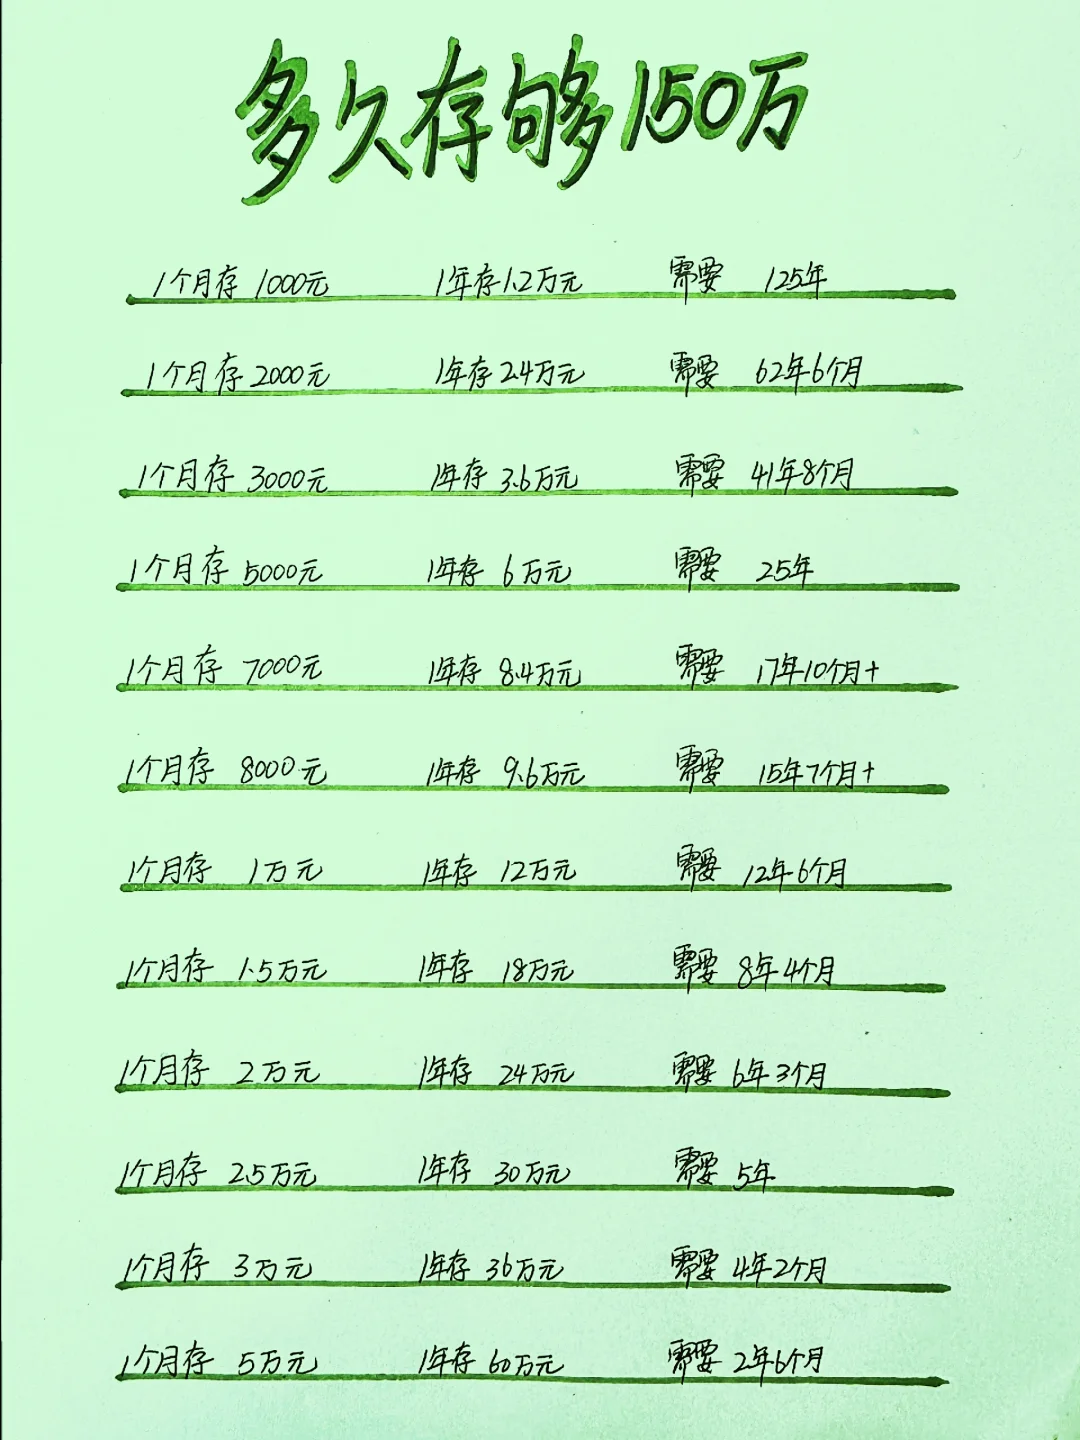 多久存够150万
1个月存 1000元 1年存1.2万元 需要 125年
1个月存 2000元 1年存2.4万元 需要 62年6个月
1个月存 3000元 1年存 3.6万元 需要 41年8个月
1个月存 5000元 1年存 6万元 需要 25年
1个月存 7000元 1年存 8.4万元 需要 17年10个月+
1个月存 8000元 1年存 9.6万元 需要 15年7个月+
1个月存 1万元 1年存 12万元 需要 12年6个月
1个月存 1.5万元 1年存 18万元 需要 8年4个月
1个月存 2万元 1年存 24万元 需要 6年3个月
1个月存 2.5万元 1年存 30万元 需要 5年
1个月存 3万元 1年存 36万元 需要 4年2个月
1个月存 5万元 1年存 60万元 需要 2年6个月